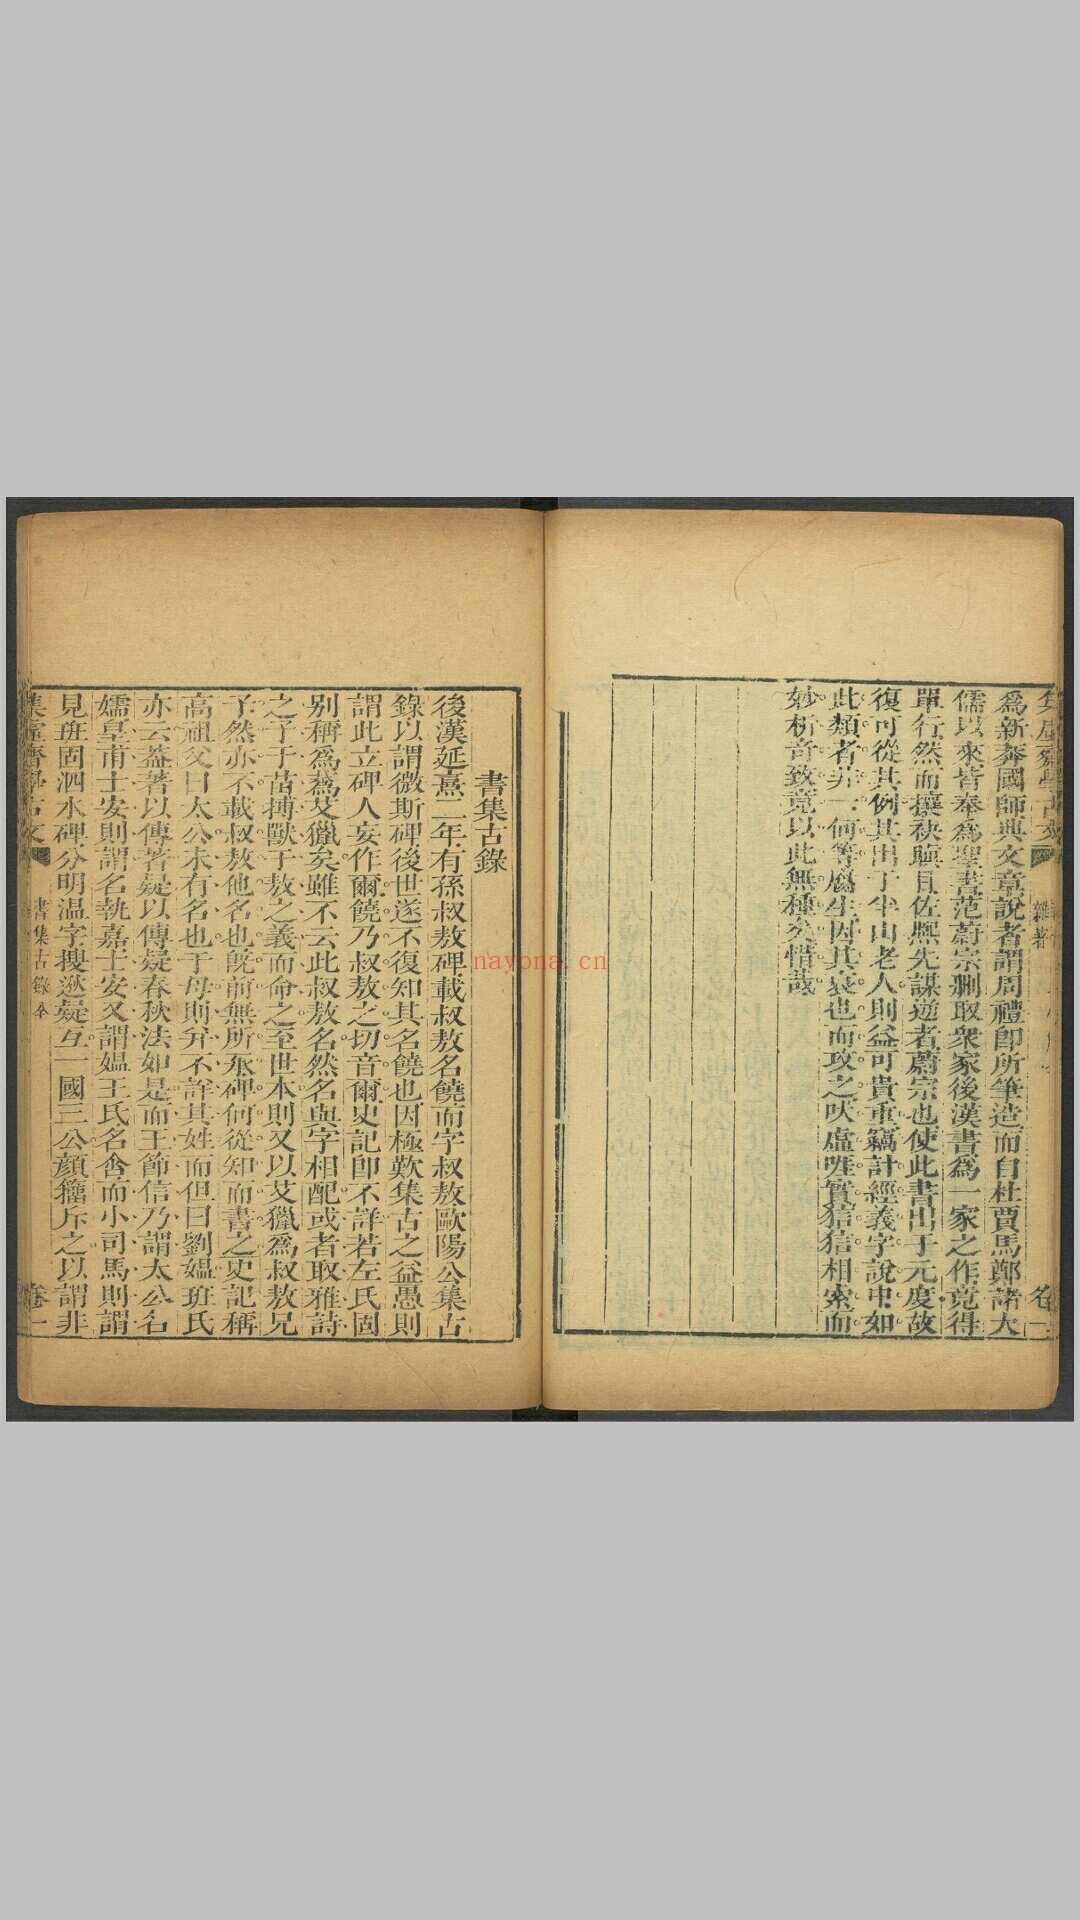 爲新莽國師典文章說者謂周禮卽所筆造而自杜賈馬鄭諸大
儒以來皆奉爲聖書范蔚宗刪取衆家後漢書爲一家之作竟得
單行然而攘袂瞋目佐熙先謀逆者蔚宗也使此書出于元度故
復可從其例其出于半山老人則益可貴重竊計經義字說中如
此類者非一何等腐生因其衰也而攻之吠虛嗥實狺狺相索而
妙析奇致竟以此無種矣惜哉
雜著
卷一
nayona.cn
書集古錄
後漢延熹二年有孫叔敖碑載叔敖名饒而字叔敖歐陽公集古
錄以謂微斯碑後世遂不復知其名饒也因極歎集古之益愚則
謂此立碑人妄作爾饒乃叔敖之切音爾史記卽不詳若左氏固
別稱爲蔿艾獵矣雖不云此叔敖名然名與字相配或者取雅詩
之子于苗搏獸于敖之義而命之至世本則又以艾獵爲叔敖兄
子然亦不載叔敖他名也旣前無所承碑何從知而書之史記稱
高祖父曰太公未有名也于母則幷不詳其姓而但曰劉媼班氏
亦云蓋著以傳著疑以傳疑春秋法如是而王節信乃謂太公名
㷄皇甫士安則謂名執嘉士安又謂媼王氏名含而小司馬則謂
見班固泗水碑分明溫字搜逖疑互一國三公顏籀斥之以謂非
集虛齋學古文
書集古錄
卷一